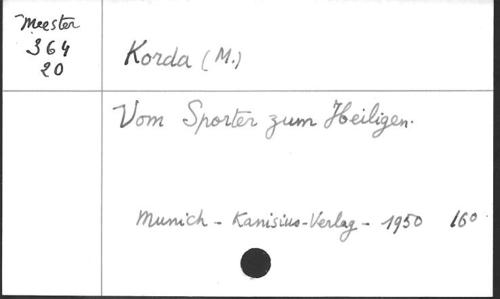 Meester
364
20
Korda (M.)
Vom Sporter zum Heiligen.
Munich - Kanisius-Verlag - 1950 160